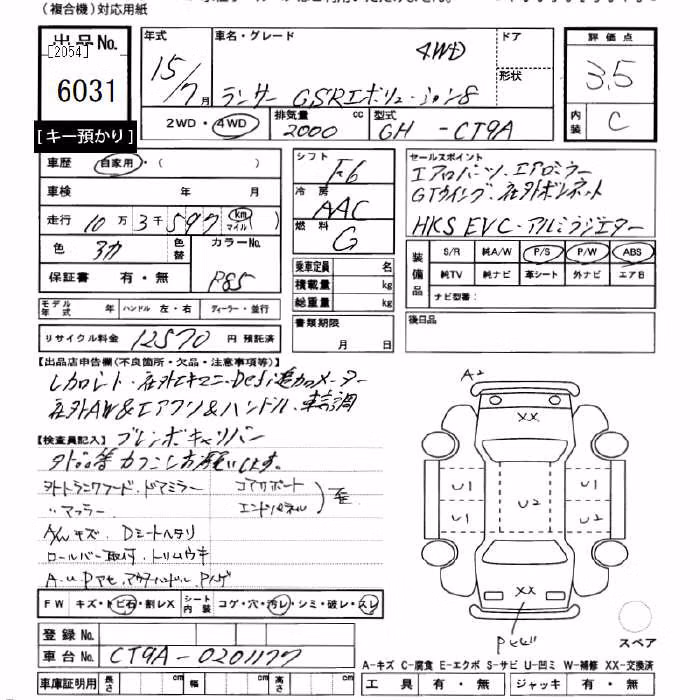 (複合機)対応用紙
出品No.
[2054]
6031
[キー預かり]
年式 車名・グレード ドア
15/7月 4WD 形状
ランサー GSRエボリューション8
2WD・4WD 排気量 2000 cc 型式 GH - CT9A
評価点
3.5
内装 C
車歴 自家用・( )
車検 年 月
走行 10万3千597 km マイル ( )
色 色替 カラーNo.
保証書 有・無 P85
モデル年式 年 ハンドル 左・右 ディーラー・並行
リサイクル料金 12570 円 預託済
シフト F6
冷房 AAC
燃料 G
乗車定員 名
積載量 kg
総重量 kg
書類期限
月 日
セールスポイント
エアロパーツ、エアロミラー
GTウイング、社外ボンネット
HKS EVC・アルミラジエター
装備品 S/R 純A/W P/S P/W ABS
純TV 純ナビ 革シート 外ナビ エアB
ナビ型番:
後日品
【出品店申告欄(不良箇所・欠品・注意事項等)】
レカロシート・社外エキマニ・Defi追加メーター
社外AW&エアクリ&ハンドル、車高調
【検査員記入】ブレンボキャリパー
外トランクフード、ドアミラー コアサポート
〃マフラー エンドパネル
A/Wキズ、Dシートヘタリ
ロールバー取付、トリムウキ
FW キズ・トビ石・割レX シート内装 コゲ・穴・汚レ・シミ・破レ・スレ
登録No.
車台No. CT9A-0201177
車庫証明用 長さ cm 幅 cm 高さ cm
A2
XX
U1 U1
U2
U1 U2
XX
スペア
A-キズ C-腐食 E-エクボ S-サビ U-凹ミ W-補修 XX-交換済
工具 有・無 ジャッキ 有・無